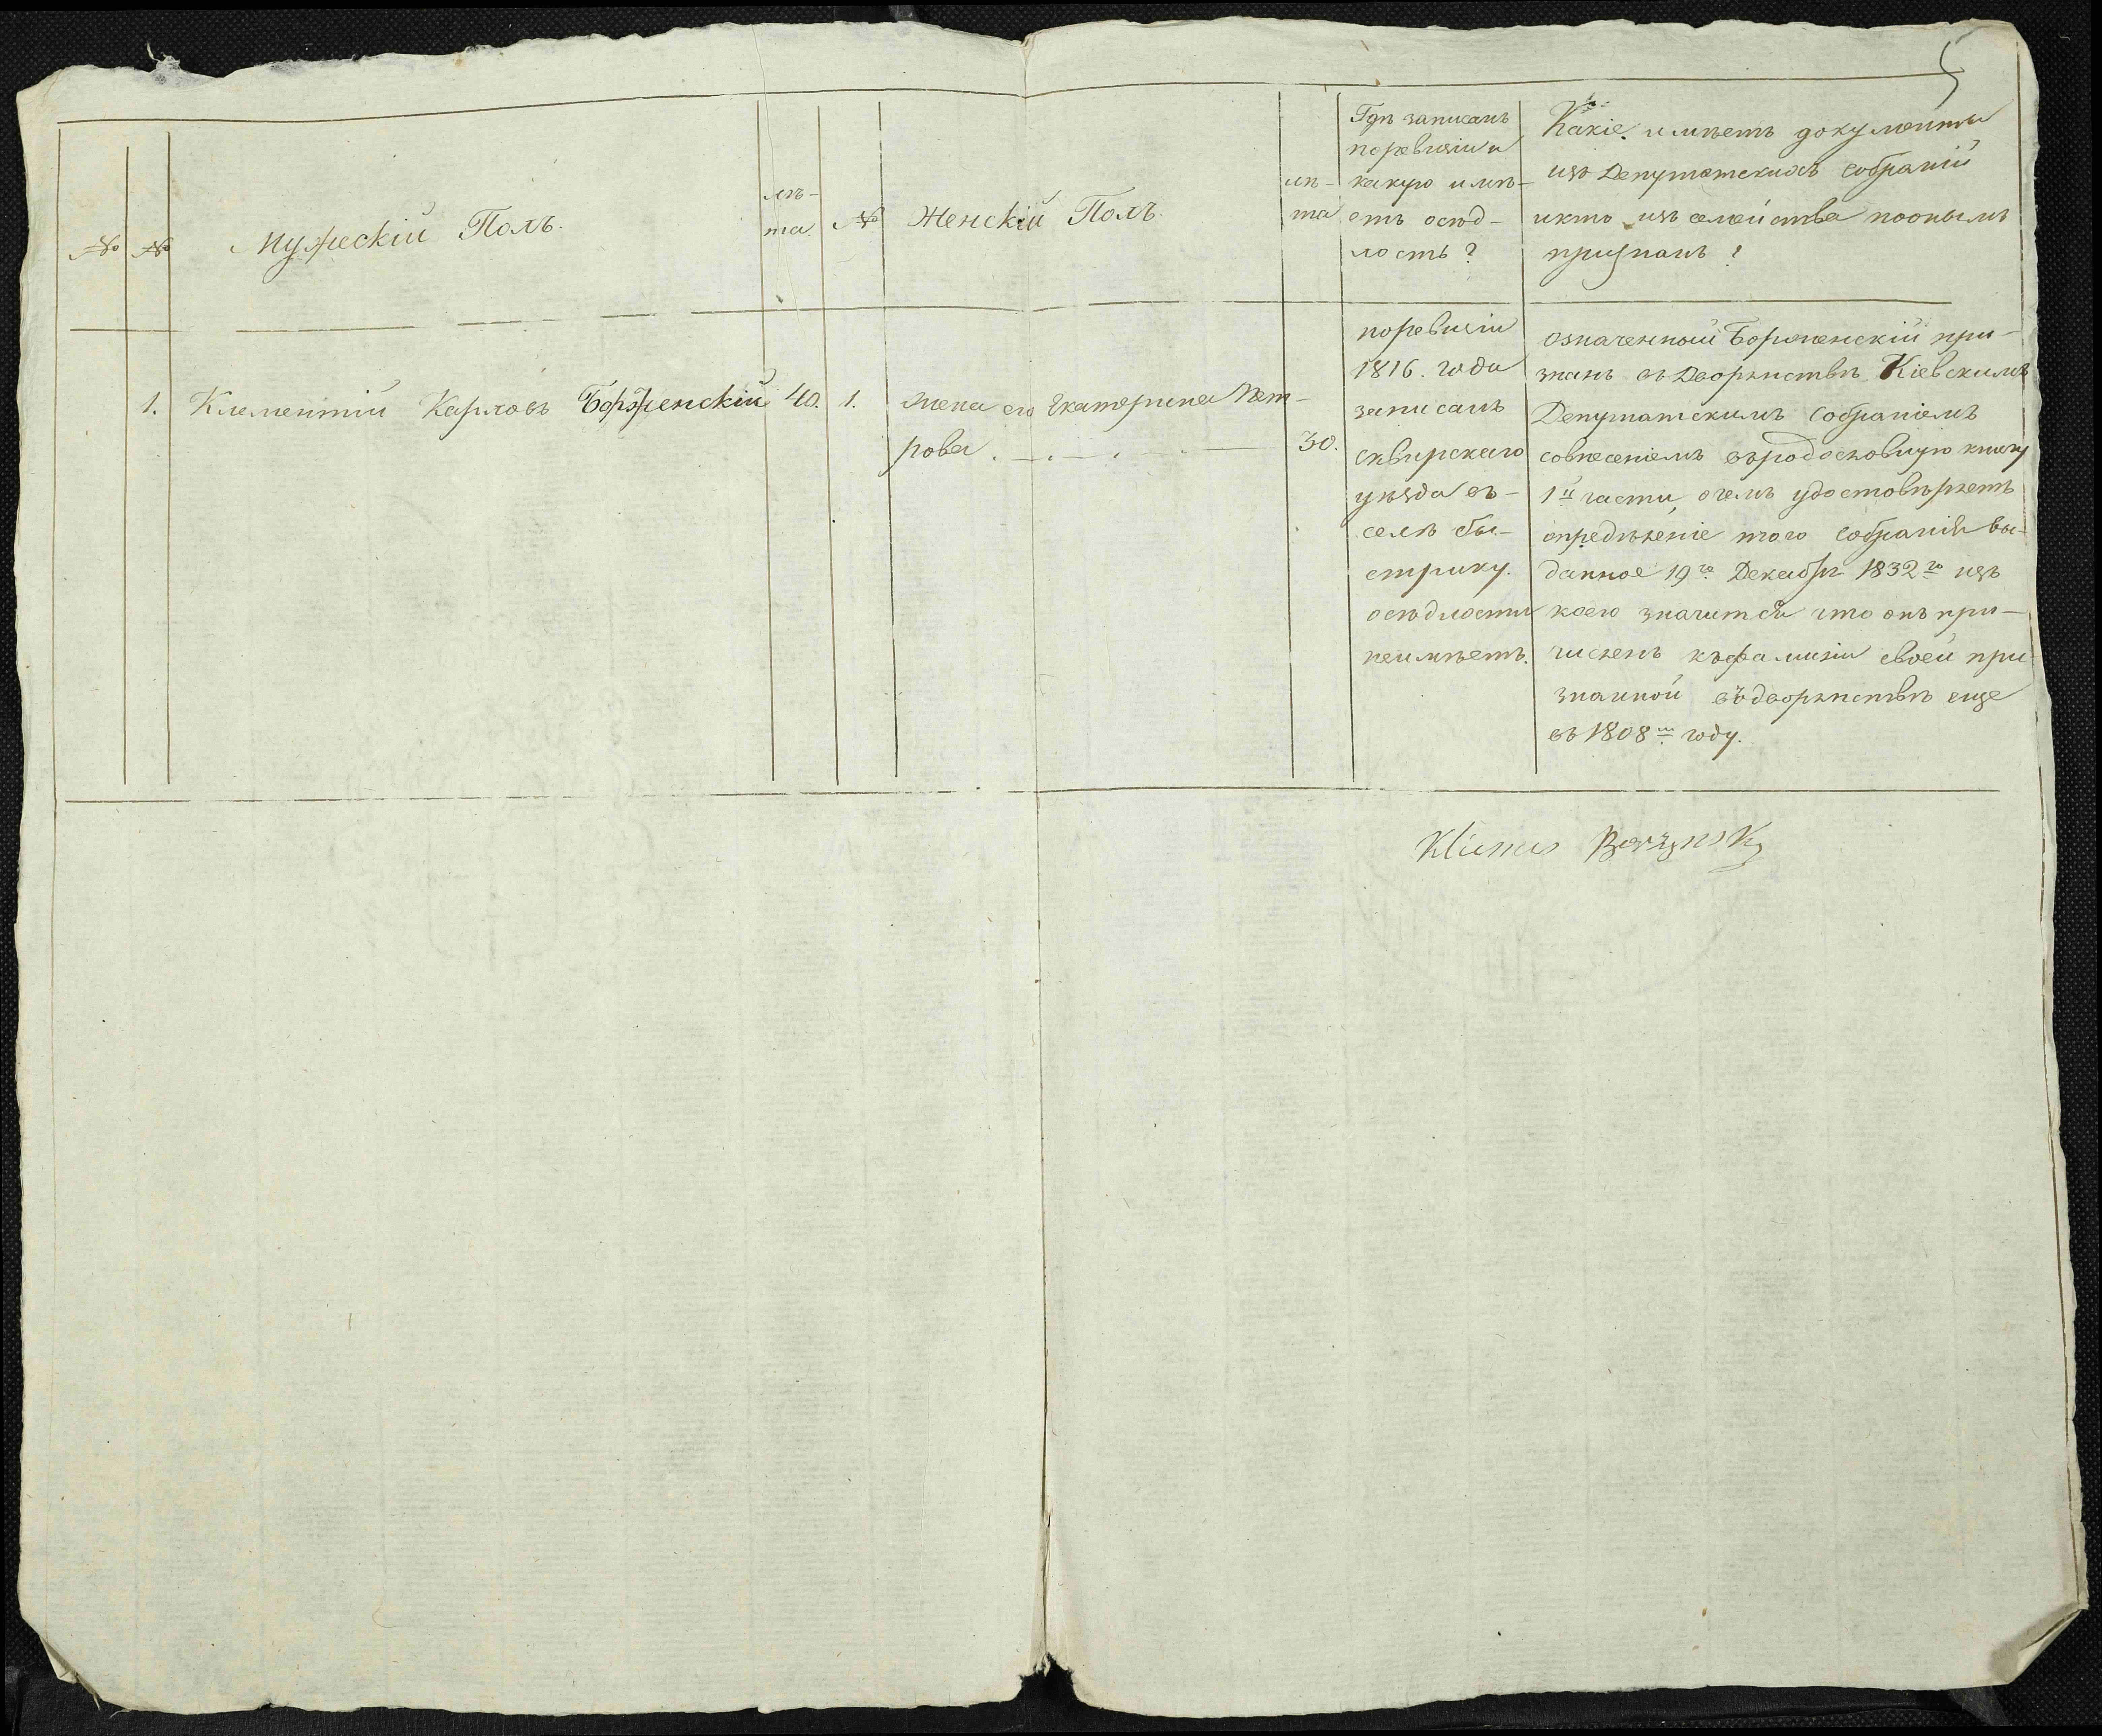 5
№ №
Мужескій Полъ.
лѣ-
та
№
Женскій Полъ.
лѣ-
та
Гдѣ записанъ
поревизіи и
какую имѣ-
етъ осѣд-
лость?
Какіе имѣетъ документы
изъ Депутатскихъ Собраній
икто изъ семейства поонымъ
признанъ?
1. Климентій Карловъ Борженскій 40.
1. жена его Екатерина Пет-
рова . — . — . — . — 30.
поревизіи
1816. года
записанъ
сквирскаго
уѣзда въ-
селѣ бы-
стрику.
осѣдлости
неимѣетъ.
означенный Борженскій при-
знанъ въ Дворянствѣ Кіевскимъ
Депутатскимъ Собраніемъ
совнесеніемъ въродословную книгу
1й части, очемъ удостовѣряетъ
опредѣленіе того Собранія вы-
данное 19го Декабря 1832го изъ
коего значится что онъ при-
численъ къфамиліи своей при-
знанной въдворянствѣ еще
въ 1808м году.